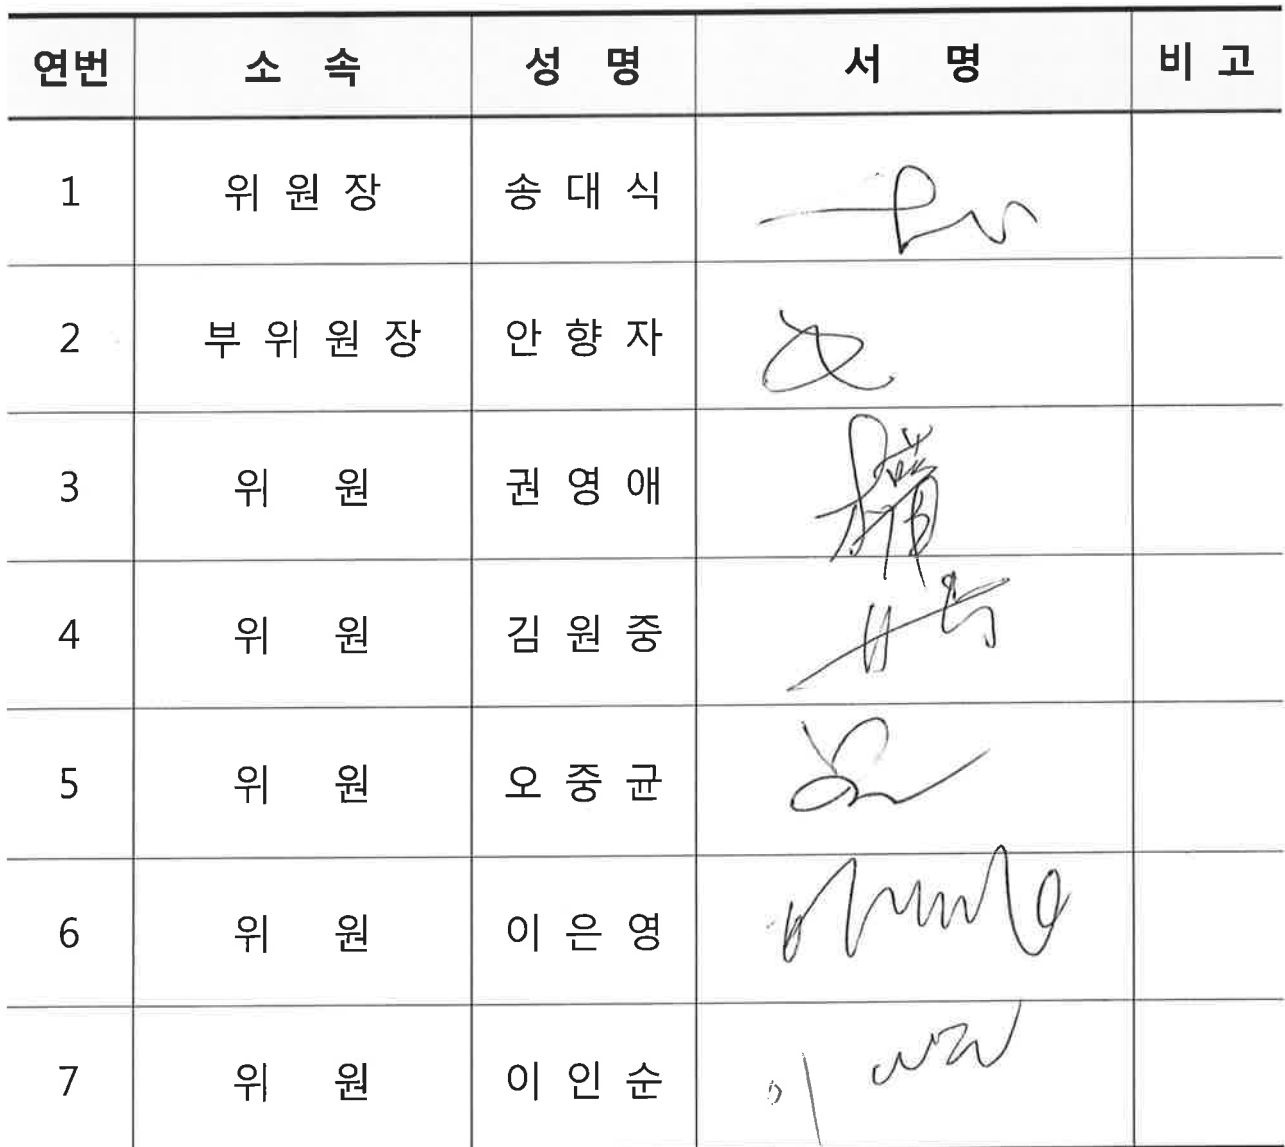 연번 소 속 성 명 서 명 비 고
1 위 원 장 송 대 식
2 부 위 원 장 안 향 자
3 위 원 권 영 애
4 위 원 김 원 중
5 위 원 오 중 균
6 위 원 이 은 영
7 위 원 이 인 순